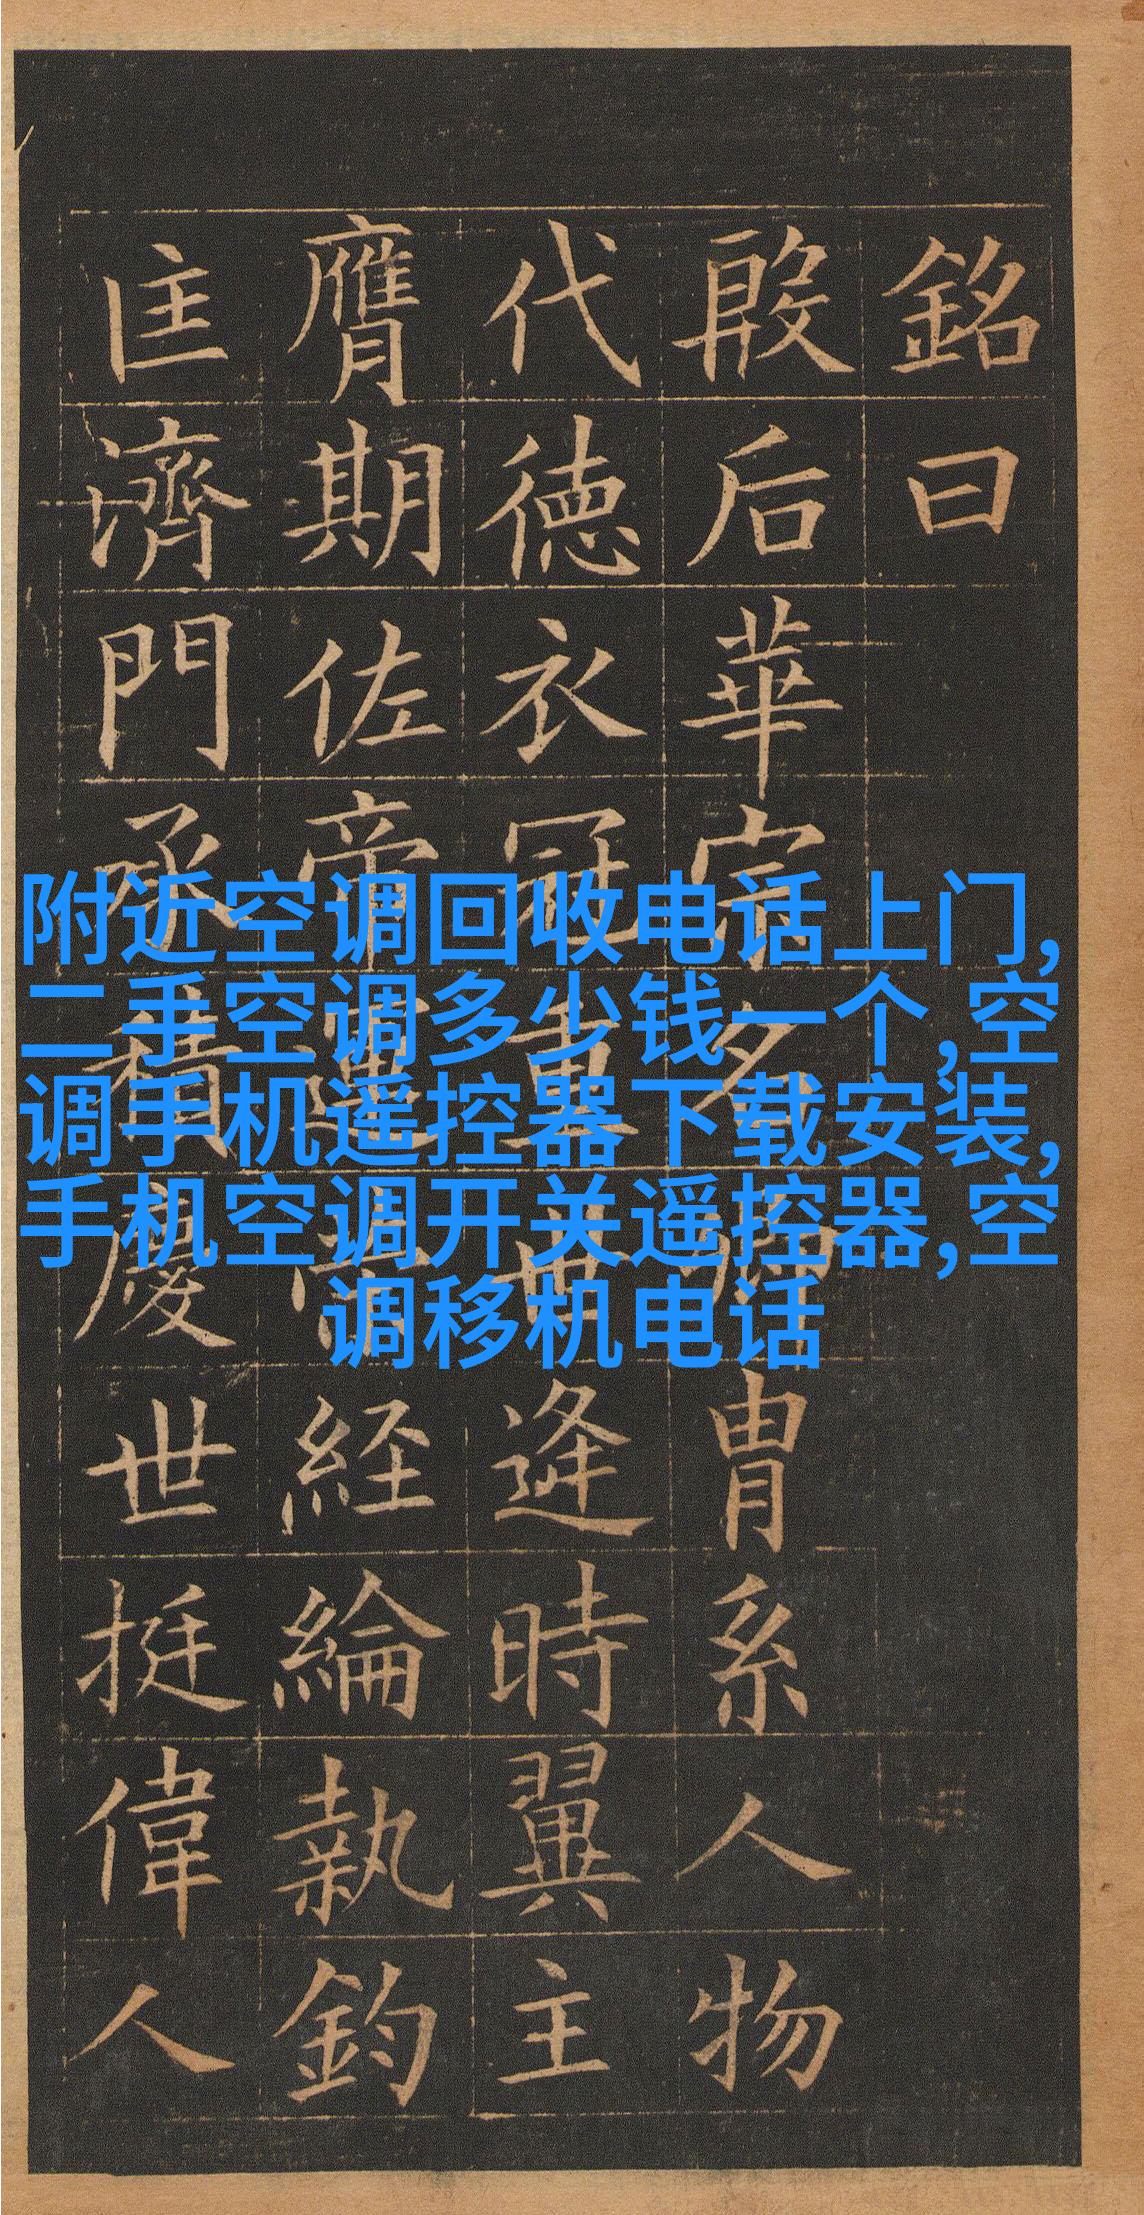 銘曰
殷后華宗名冑系人物
代德衣冠重世逢時翼主
膺期佐帝運経綸執鈞
匡濟門承積慶世挺偉人
附近空调回收电话上门,
二手空调多少钱一个,空
调手机遥控器下载安装,
手机空调开关遥控器,空
调移机电话